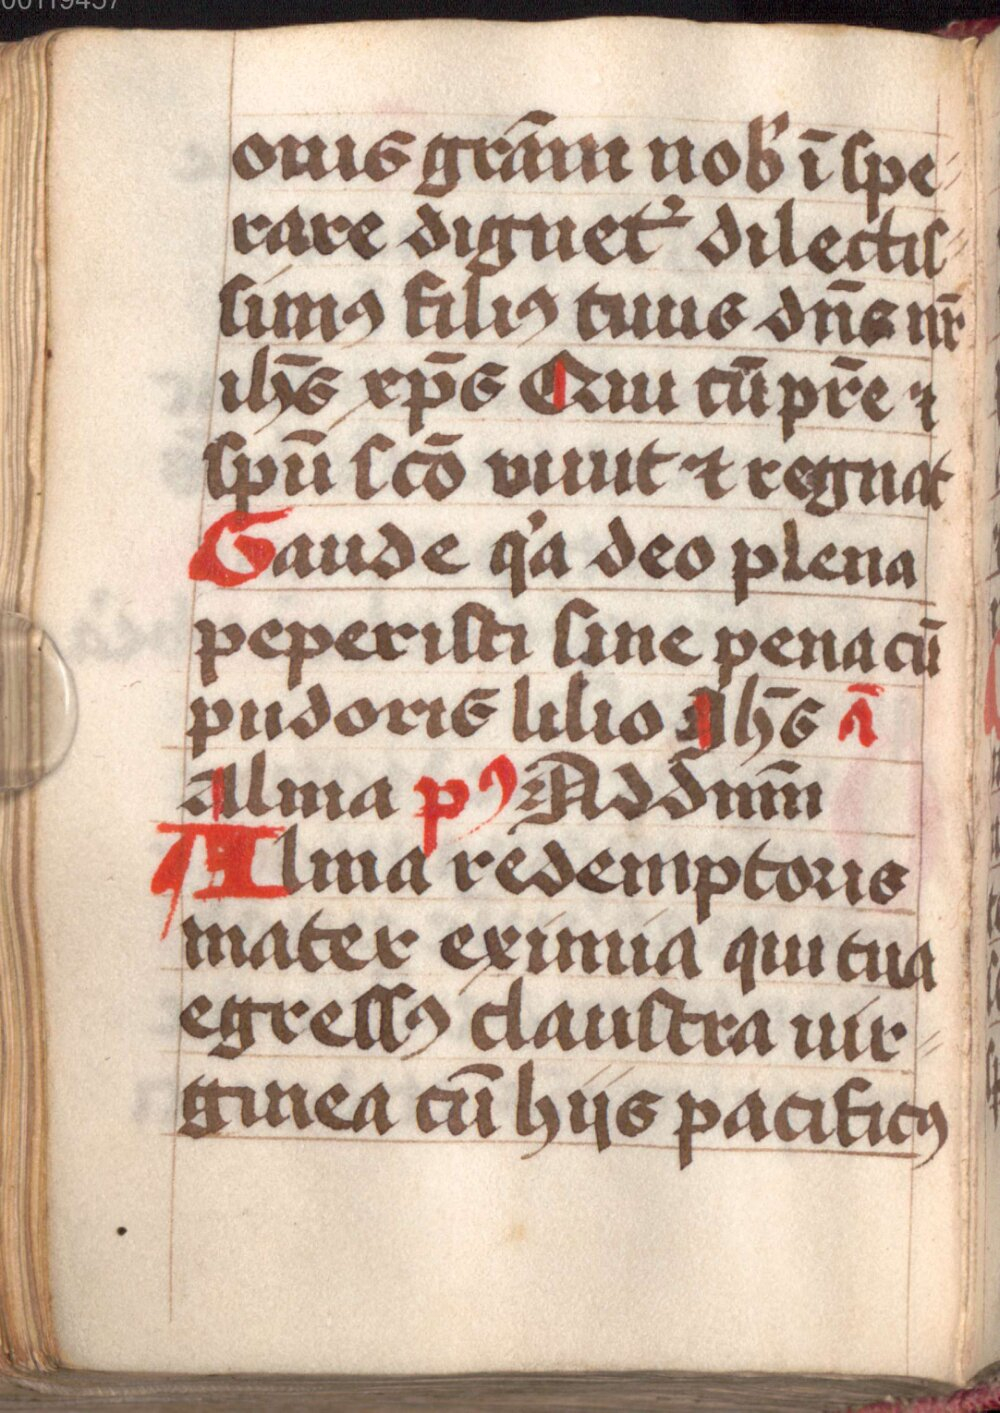 onis grām nob̄ ī spe=
rare dignet᷑ dilectis=
simꝰ filiꝰ tuus dn̄s nr̄
ihs̄ xps̄ Qui cū pr̄e ⁊
spū scō viuit ⁊ regnat
Gaude qͥa deo plena
peperisti sine pena cū
pudoris lilio Jhs̄ ā
Alma pꝰ Ad dnm̄
Alma redemptoris
mater eximia qui tua
egressꝰ claustra uir=
ginea cū hijs pacificꝰ